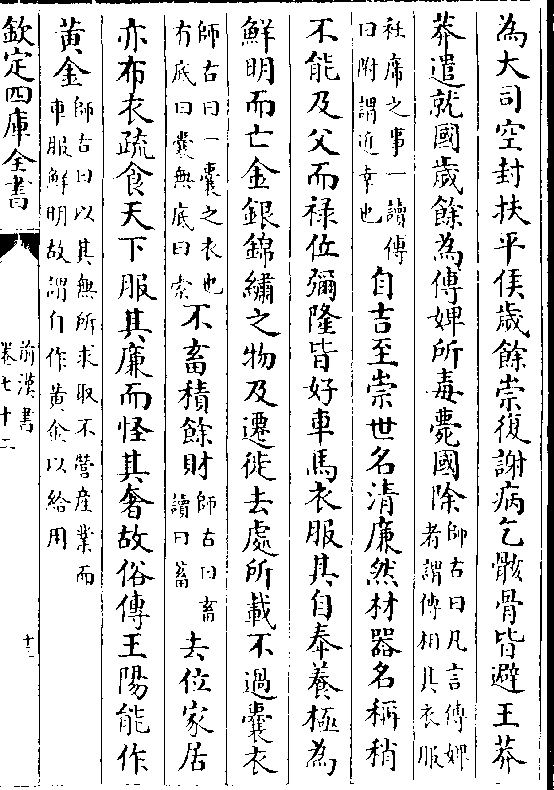 為大司空封扶平侯歲餘崇復謝病乞骸骨皆避王莽
莽遣就國歲餘為傅婢所毒薨國除師古曰凡言傅婢
者謂傅相其衣服
社席之事一讀傅
曰附謂近幸也
自吉至崇世名清廉然材器名稱稍
不能及父而祿位彌隆皆好車馬衣服其自奉養極為
鮮明而亡金銀錦繡之物及遷徙去處所載不過囊衣
師古曰一囊之衣也
有底曰囊無底曰橐
不畜積餘財師古曰畜
讀曰蓄
去位家居
亦布衣疏食天下服其廉而怪其奢故俗傳王陽能作
黃金師古曰以其無所求取不營產業而
車服鮮明故謂自作黃金以給用
欽定四庫全書
前漢書
卷七十二
十二